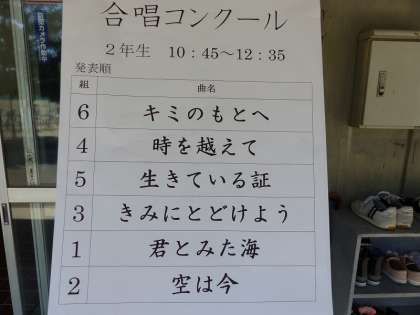 合唱コンクール
2年生 10:45～12:35
発表順
組 曲名
6 キミのもとへ
4 時を越えて
5 生きている証
3 きみにとどけよう
1 君とみた海
2 空は今